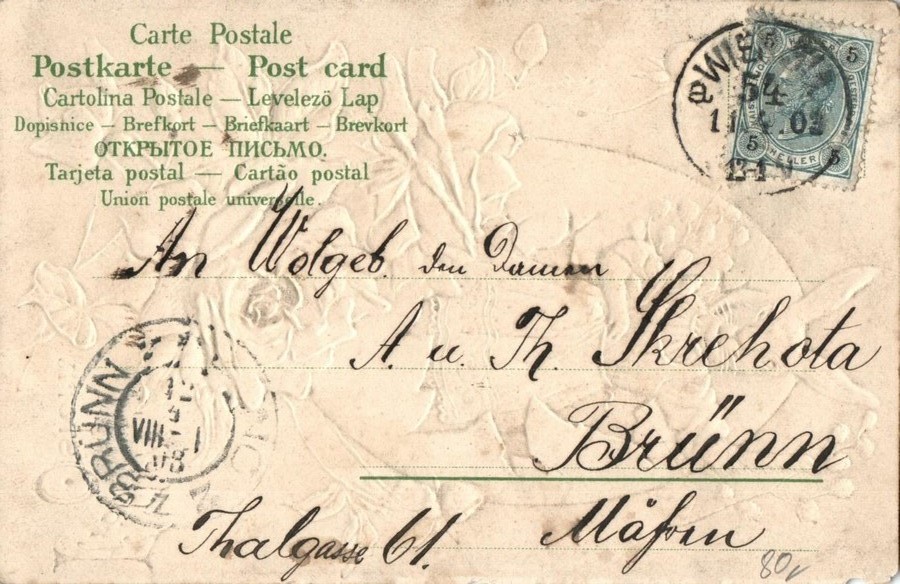 Carte Postale
Postkarte — Post card
Cartolina Postale — Levelező Lap
Dopisnice — Brefkort — Briefkaart — Brevkort
ОТКРЫТОЕ ПИСЬМО.
Tarjeta postal — Cartão postal
Union postale universelle.
WIEN
54
5 5
5 HELLER 5
An Wolgeb. den Damen
A. u. Th. Skrehota
Brünn
BRÜNN
VIII
Thalgasse 61.
Mähren
80